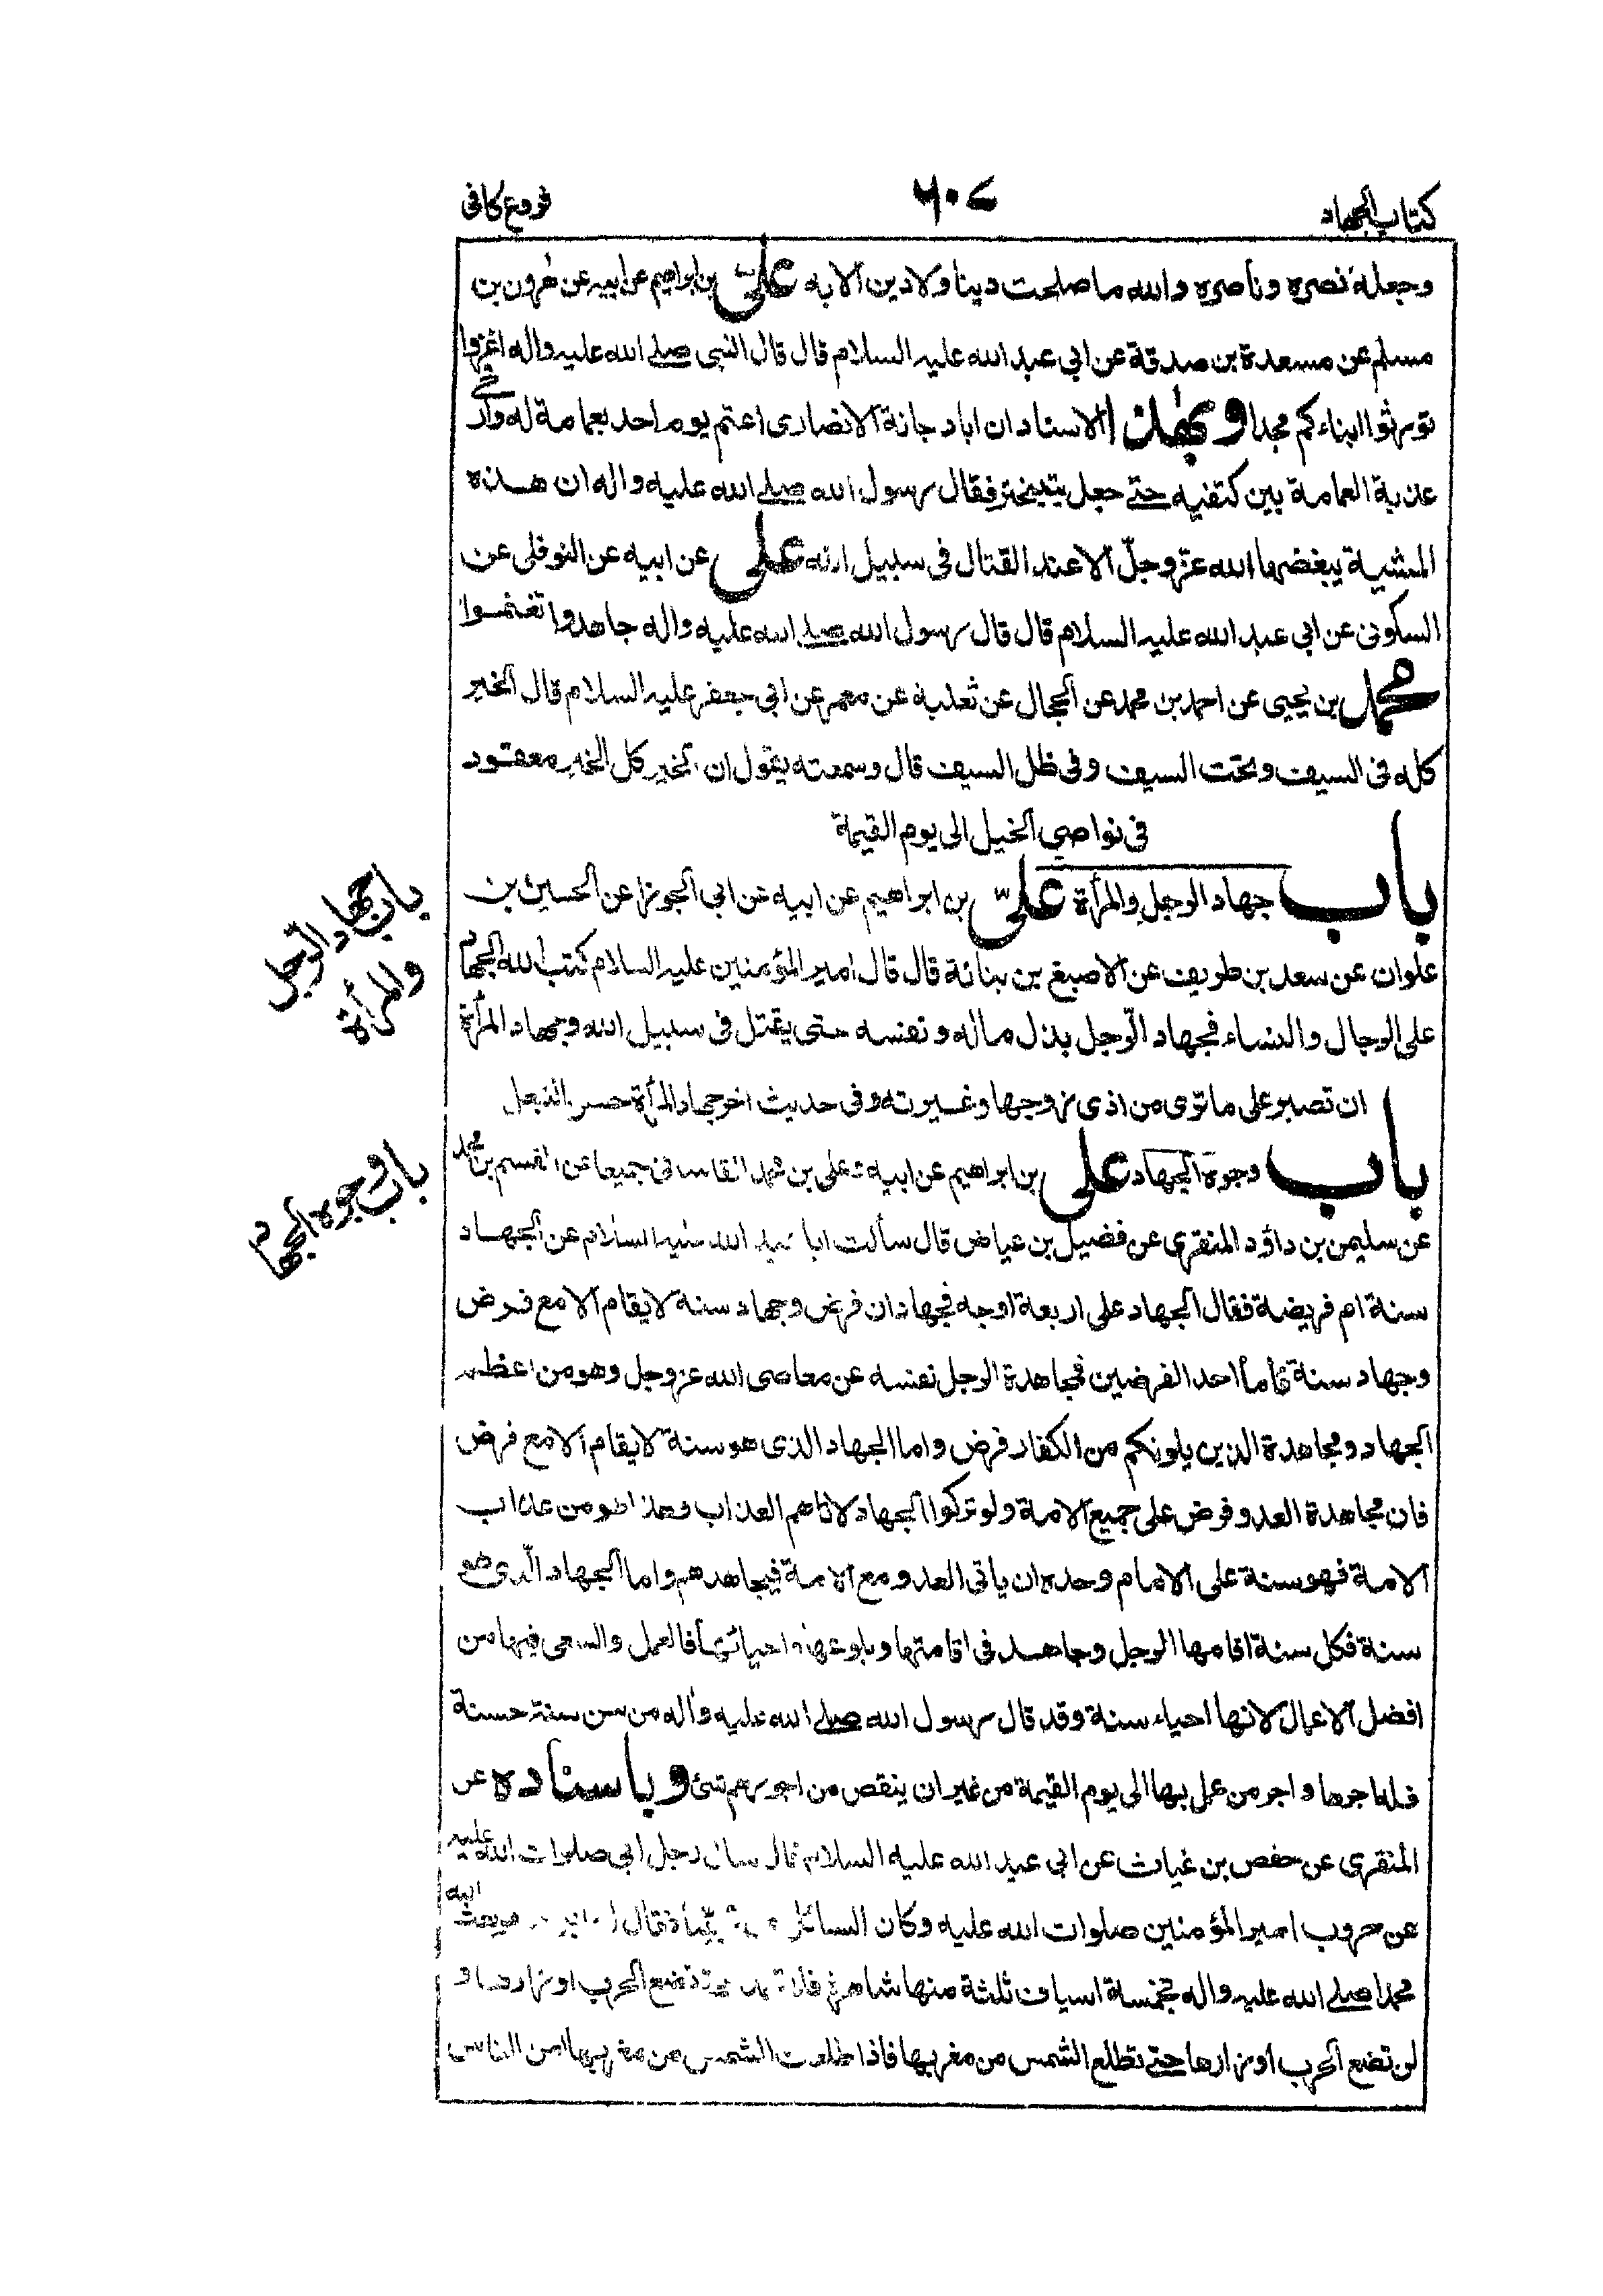 كتاب الجهاد ٦٠٧ فروع كافى
وجعله نصره وناصره والله ما صلحت دينا ولا دين الا به على بن ابراهيم عن ابيه عن هرون بن
مسلم عن مسعدة بن صدقة عن ابي عبد الله عليه السلام قال قال النبى صلى الله عليه واله اغزوا
تورثوا ابناءكم مجدا وبهذا الاسناد ان ابا دجانة الانصارى اعتم يوم احد بعمامة له وارخى
عذبة العمامة بين كتفيه حتى جعل يتبختر فقال رسول الله صلى الله عليه واله ان هذه
المشية يبغضها الله عز وجلّ الا عند القتال فى سبيل الله على عن ابيه عن النوفلى عن
السكونى عن ابى عبد الله عليه السلام قال قال رسول الله صلى الله عليه واله جاهدوا تغنموا
محمد بن يحيى عن احمد بن محمد عن الحجال عن ثعلبة عن معمر عن ابى جعفر عليه السلام قال الخير
كله فى السيف وتحت السيف وفى ظل السيف قال وسمعته يقول ان الخير كل الخير معقود
فى نواصى الخيل الى يوم القيمة
باب جهاد الرجل والمرأة علىّ بن ابراهيم عن ابيه عن ابى الجوزا عن الحسين بن
علوان عن سعد بن طريف عن الاصبغ بن نباتة قال قال امير المؤمنين عليه السلام كتب الله الجهاد
على الرجال والنساء فجهاد الرّجل بذل ماله ونفسه حتى يقتل فى سبيل الله وجهاد المرأة
ان تصبر على ما ترى من اذى زوجها وغيرته وفى حديث اخر جهاد المرأة حسن التبعل
باب وجوه الجهاد على بن ابراهيم عن ابيه وعلى بن محمد القاسانى جميعا عن القسم بن محمد
عن سليمن بن داؤد المنقرى عن فضيل بن عياض قال سألت ابا عبد الله عليه السلام عن الجهاد
سنة ام فريضة فقال الجهاد على اربعة اوجه فجهادان فرض وجهاد سنة لا يقام الا مع فرض
وجهاد سنة فاما احد الفرضين فمجاهدة الرجل نفسه عن معاصى الله عز وجل وهو من اعظم
الجهاد ومجاهدة الذين يلونكم من الكفار فرض واما الجهاد الذى هو سنة لا يقام الا مع فرض
فان مجاهدة العدو فرض على جميع الامة ولو تركوا الجهاد لاتاهم العذاب وهذا هو من عذاب
الامة فهو سنة على الامام وحده ان ياتى العدو مع الامة فيجاهدهم واما الجهاد الّذى هو
سنة فكل سنة اقامها الرجل وجاهد فى اقامتها وبلوغها واحيائها فالعمل والسعى فيها من
افضل الاعمال لانها احياء سنة وقد قال رسول الله صلى الله عليه واله من سن سنة حسنة
فله اجرها واجر من عمل بها الى يوم القيمة من غير ان ينقص من اجورهم شئ وباسناده عن
المنقرى عن حفص بن غياث عن ابى عبد الله عليه السلام قال سال رجل ابى صلوات الله عليه
عن حروب امير المؤمنين صلوات الله عليه وكان السائل من فقال بعث الله
محمدا صلى الله عليه واله بخمسة اسياف ثلثة منها شاهرة فلا تغمد حتى تضع الحرب اوزارها و
لن تضع الحرب اوزارها حتى تطلع الشمس من مغربها فاذا طلعت الشمس من مغربها امن الناس
باب جهاد الرّجل
والمرأة
باب وجوه الجهاد